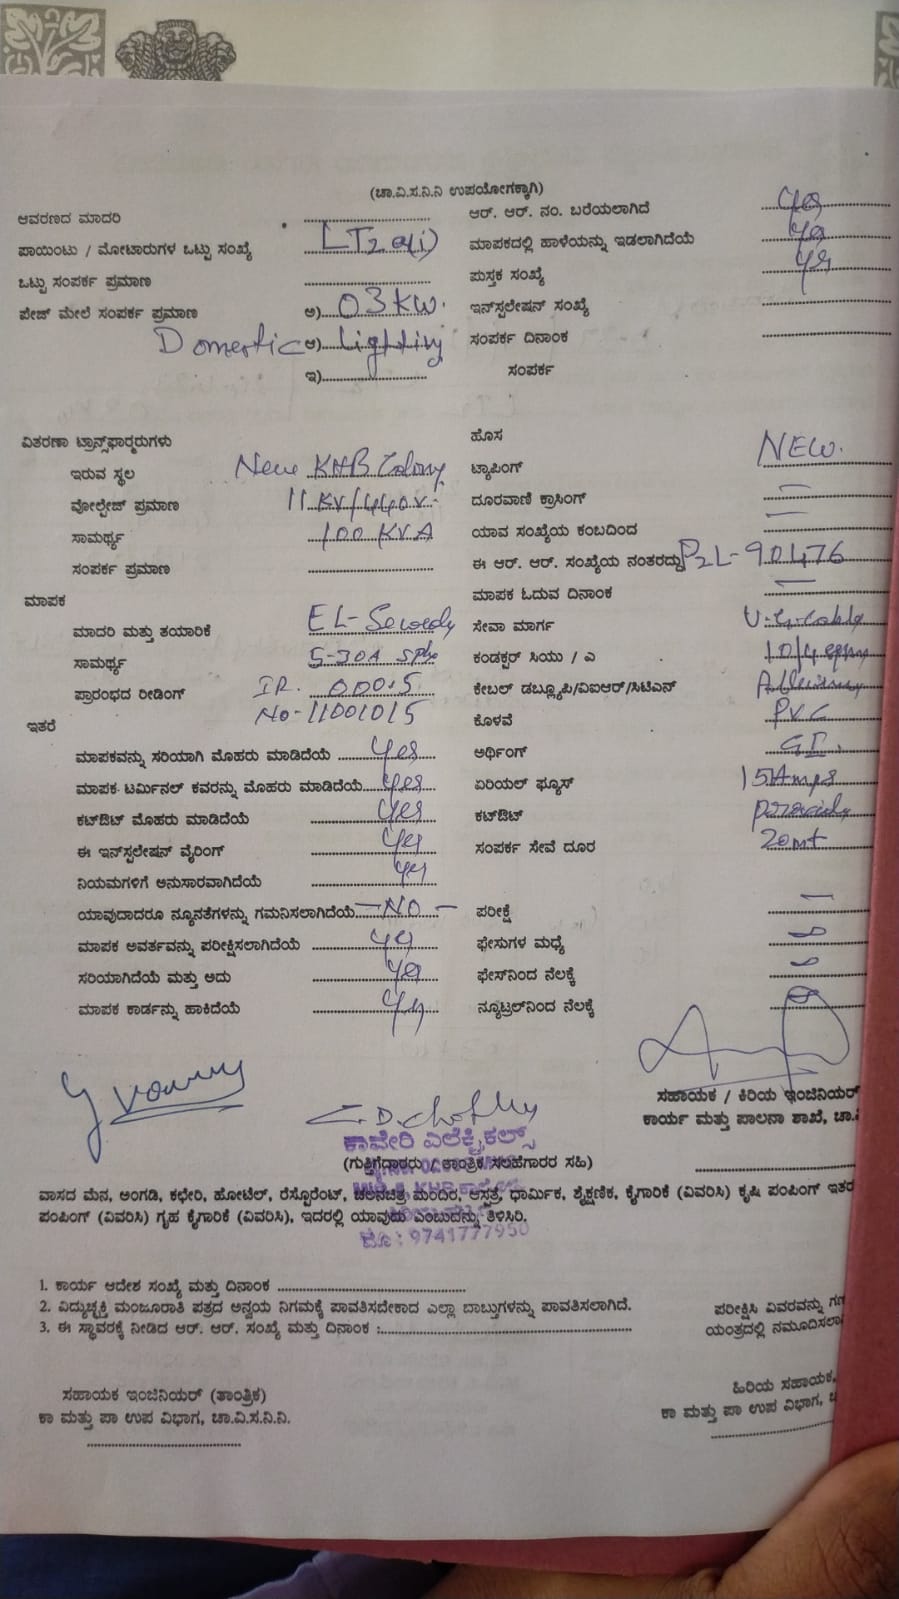 (ಚಾ.ವಿ.ಸ.ನಿ.ನಿ ಉಪಯೋಗಕ್ಕಾಗಿ)
ಆವರಣದ ಮಾದರಿ
ಆರ್. ಆರ್. ನಂ. ಬರೆಯಲಾಗಿದೆ yes
ಪಾಯಿಂಟು / ಮೋಟಾರುಗಳ ಒಟ್ಟು ಸಂಖ್ಯೆ LT2 a(i)
ಮಾಪಕದಲ್ಲಿ ಹಾಳೆಯನ್ನು ಇಡಲಾಗಿದೆಯೆ yes
ಒಟ್ಟು ಸಂಪರ್ಕ ಪ್ರಮಾಣ
ಪುಸ್ತಕ ಸಂಖ್ಯೆ yes
ಪೇಜ್ ಮೇಲೆ ಸಂಪರ್ಕ ಪ್ರಮಾಣ ಅ) 03KW.
ಇನ್‌ಸ್ಟಲೇಷನ್ ಸಂಖ್ಯೆ
Domestic ಆ) lighting
ಸಂಪರ್ಕ ದಿನಾಂಕ
ಇ)
ಸಂಪರ್ಕ
ವಿತರಣಾ ಟ್ರಾನ್ಸ್‌ಫಾರ್‍ಮರುಗಳು
ಹೊಸ NEW.
ಇರುವ ಸ್ಥಲ New KHB Colony
ಟ್ಯಾಪಿಂಗ್
ವೋಲ್ಟೇಜ್ ಪ್ರಮಾಣ 11 KV/440V.
ದೂರವಾಣಿ ಕ್ರಾಸಿಂಗ್ —
ಸಾಮರ್ಥ್ಯ 100 KVA
ಯಾವ ಸಂಖ್ಯೆಯ ಕಂಬದಿಂದ —
ಸಂಪರ್ಕ ಪ್ರಮಾಣ
ಈ ಆರ್. ಆರ್. ಸಂಖ್ಯೆಯ ನಂತರದ್ದು P2L-90476
ಮಾಪಕ
ಮಾಪಕ ಓದುವ ದಿನಾಂಕ —
ಮಾದರಿ ಮತ್ತು ತಯಾರಿಕೆ
ಸೇವಾ ಮಾರ್ಗ U.G.Cable
ಸಾಮರ್ಥ್ಯ 5-30A
ಕಂಡಕ್ಟರ್ ಸಿಯು / ಎ
ಪ್ರಾರಂಭದ ರೀಡಿಂಗ್ IR. 0001.5
ಕೇಬಲ್ ಡಬ್ಲ್ಯೂಪಿ/ವಿಐಆರ್/ಸಿಟಿಎಸ್
No-11001015
ಇತರೆ
ಕೊಳವೆ PVC
ಮಾಪಕವನ್ನು ಸರಿಯಾಗಿ ಮೊಹರು ಮಾಡಿದೆಯೆ yes
ಅರ್ಥಿಂಗ್ GI.
ಮಾಪಕ ಟರ್ಮಿನಲ್ ಕವರನ್ನು ಮೊಹರು ಮಾಡಿದೆಯೆ yes
ಏರಿಯಲ್ ಫ್ಯೂಸ್ 15Amps
ಕಟ್‌ಔಟ್ ಮೊಹರು ಮಾಡಿದೆಯೆ yes
ಕಟ್‌ಔಟ್
ಈ ಇನ್‌ಸ್ಟಲೇಷನ್ ವೈರಿಂಗ್ yes
ಸಂಪರ್ಕ ಸೇವೆ ದೂರ 20mt
ನಿಯಮಗಳಿಗೆ ಅನುಸಾರವಾಗಿದೆಯೆ yes
ಯಾವುದಾದರೂ ನ್ಯೂನತೆಗಳನ್ನು ಗಮನಿಸಲಾಗಿದೆಯೆ — NO —
ಪರೀಕ್ಷೆ —
ಮಾಪಕ ಅವರ್ತವನ್ನು ಪರೀಕ್ಷಿಸಲಾಗಿದೆಯೆ yes
ಫೇಸುಗಳ ಮಧ್ಯೆ
ಸರಿಯಾಗಿದೆಯೆ ಮತ್ತು ಅದು yes
ಫೇಸ್‌ನಿಂದ ನೆಲಕ್ಕೆ
ಮಾಪಕ ಕಾರ್ಡನ್ನು ಹಾಕಿದೆಯೆ yes
ನ್ಯೂಟ್ರಲ್‌ನಿಂದ ನೆಲಕ್ಕೆ
ಸಹಾಯಕ / ಕಿರಿಯ ಇಂಜಿನಿಯರ್
ಕಾರ್ಯ ಮತ್ತು ಪಾಲನಾ ಶಾಖೆ, ಚಾ.
ಕಾವೇರಿ ಎಲೆಕ್ಟ್ರಿಕಲ್ಸ್
(ಗುತ್ತಿಗೆದಾರರು / ತಾಂತ್ರಿಕ ಸಲಹೆಗಾರರ ಸಹಿ)
ವಾಸದ ಮನೆ, ಅಂಗಡಿ, ಕಛೇರಿ, ಹೋಟೆಲ್, ರೆಸ್ಟೋರೆಂಟ್, ಚಲನಚಿತ್ರ ಮಂದಿರ, ಆಸ್ಪತ್ರೆ, ಧಾರ್ಮಿಕ, ಶೈಕ್ಷಣಿಕ, ಕೈಗಾರಿಕೆ (ವಿವರಿಸಿ) ಕೃಷಿ ಪಂಪಿಂಗ್ ಇತರ
ಪಂಪಿಂಗ್ (ವಿವರಿಸಿ) ಗೃಹ ಕೈಗಾರಿಕೆ (ವಿವರಿಸಿ), ಇದರಲ್ಲಿ ಯಾವುದು ಎಂಬುದನ್ನು ತಿಳಿಸಿರಿ.
ಮೊ : 9741777950
1. ಕಾರ್ಯ ಆದೇಶ ಸಂಖ್ಯೆ ಮತ್ತು ದಿನಾಂಕ
2. ವಿದ್ಯುಚ್ಛಕ್ತಿ ಮಂಜೂರಾತಿ ಪತ್ರದ ಅನ್ವಯ ನಿಗಮಕ್ಕೆ ಪಾವತಿಸಬೇಕಾದ ಎಲ್ಲಾ ಬಾಬ್ತುಗಳನ್ನು ಪಾವತಿಸಲಾಗಿದೆ.
3. ಈ ಸ್ಥಾವರಕ್ಕೆ ನೀಡಿದ ಆರ್. ಆರ್. ಸಂಖ್ಯೆ ಮತ್ತು ದಿನಾಂಕ :
ಪರೀಕ್ಷಿಸಿ ವಿವರವನ್ನು
ಯಂತ್ರದಲ್ಲಿ
ಸಹಾಯಕ ಇಂಜಿನಿಯರ್ (ತಾಂತ್ರಿಕ)
ಕಾ ಮತ್ತು ಪಾ ಉಪ ವಿಭಾಗ, ಚಾ.ವಿ.ಸ.ನಿ.ನಿ.
ಹಿರಿಯ ಸಹಾಯಕ,
ಕಾ ಮತ್ತು ಪಾ ಉಪ ವಿಭಾಗ,